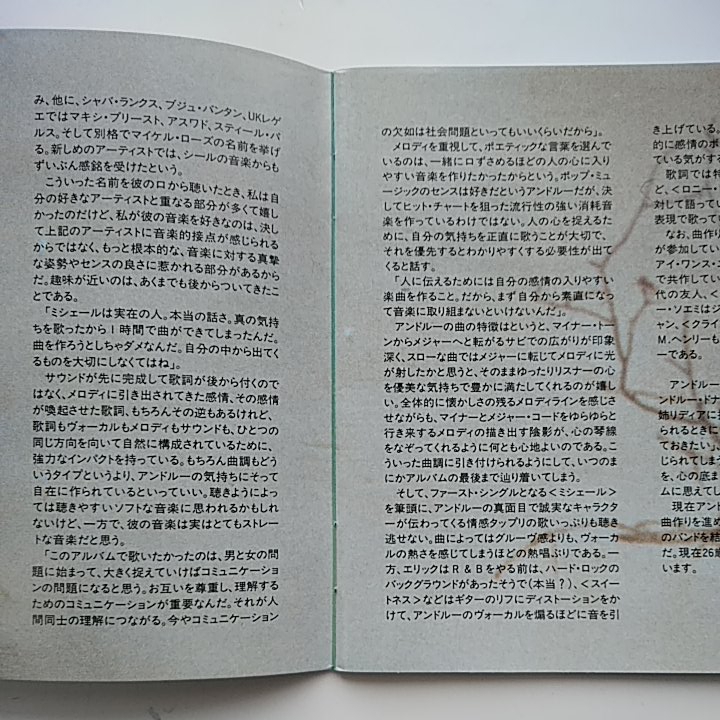 み、他に、シャバ・ランクス、ブジュ・バンタン、UKレゲ
エではマキシ・プリースト、アスワド、スティール・パ
ルス。そして別格でマイケル・ローズの名前を挙げ
る。新しめのアーティストでは、シールの音楽からも
ずいぶん感銘を受けたという。
こういった名前を彼の口から聴いたとき、私は自
分の好きなアーティストと重なる部分が多くて嬉し
かったのだけど、私が彼の音楽を好きなのは、決し
て上記のアーティストに音楽的接点が感じられる
からではなく、もっと根本的な、音楽に対する真摯
な姿勢やセンスの良さに惹かれる部分があるから
だ。趣味が近いのは、あくまでも後からついてきたこ
とである。
「ミシェールは実在の人。本当の話さ。真の気持
ちを歌ったから1時間で曲ができてしまったんだ。
曲を作ろうとしちゃダメなんだ。自分の中から出てく
るものを大切にしなくてはね」。
サウンドが先に完成して歌詞が後から付くので
はなく、メロディに引き出されてきた感情、その感情
が喚起させた歌詞、もちろんその逆もあるけれど、
歌詞もヴォーカルもメロディもサウンドも、ひとつの
同じ方向を向いて自然に構成されているために、
強力なインパクトを持っている。もちろん曲調もどう
いうタイプというより、アンドルーの気持ちにそって
自在に作られているといっていい。聴きようによっ
ては聴きやすいソフトな音楽に思われるかもしれ
ないけど、一方で、彼の音楽は実はとてもストレー
トな音楽だと思う。
「このアルバムで歌いたかったのは、男と女の問
題に始まって、大きく捉えていけばコミュニケーショ
ンの問題になると思う。お互いを尊重し、理解する
ためのコミュニケーションが重要なんだ。それが人
間同士の理解につながる。今やコミュニケーション
の欠如は社会問題といってもいいくらいだから」。
メロディを重視して、ポエティックな言葉を選んで
いるのは、一緒に口ずさめるほどの人の心に入り
やすい音楽を作りたかったからという。ポップ・ミュ
ージックのセンスは好きだというアンドルーだが、決
してヒット・チャートを狙った流行性の強い消耗音
楽を作っているわけではない。人の心を捉えるた
めに、自分の気持ちを正直に歌うことが大切で、
それを優先するとわかりやすくする必要性が出て
くると話す。
「人に伝えるためには自分の感情の入りやすい
楽曲を作ること。だから、まず自分から素直になっ
て音楽に取り組まないといけないんだ」。
アンドルーの曲の特徴はというと、マイナー・トー
ンからメジャーへと転がるサビでの広がりが印象
深く、スローな曲ではメジャーに転じてメロディに光
が射したかと思うと、そのままゆったりリスナーの心
を優美な気持ちで豊かに満たしてくれるのが嬉し
い。全体的に懐かしさの残るメロディラインを感じさ
せながらも、マイナーとメジャー・コードをゆらゆらと
行き来するメロディの描き出す陰影が、心の琴線
をなぞってくれるように何とも心地よいのである。こ
ういった曲調に引き付けられるようにして、いつのま
にかアルバムの最後まで辿り着いてしまう。
そして、ファースト・シングルとなる<ミシェール>
を筆頭に、アンドルーの真面目で誠実なキャラクタ
ーが伝わってくる情感タップリの歌いっぷりも聴き
逃せない。曲によってはグルーヴ感よりも、ヴォーカ
ルの熱さを感じてしまうほどの熱唱ぶりである。一
方、エリックはR&Bをやる前は、ハード・ロックの
バックグラウンドがあったそうで(本当?)、<スイー
トネス>などはギターのリフにディストーションをか
けて、アンドルーのヴォーカルを煽るほどに音を引
き上げている。
的に感情のボ
ている気がする
歌詞では特
ど、<ロニー・
対して語ってい
表現で歌って
なお、曲作り
が参加してい
アイ・ワンス・ニ
で共作してい
代の友人、<
ー・ソエミはジ
ャン、<クライ
M.ヘンリーも
ーである。
アンドルー
ンドルー・ドナ
姉リディアに捧
られるときに
ておきたい」
じられてしまう
を、心の底ま
ムに思えてし
現在アンド
曲作りを進め
のバンドを結
だ。現在26歳
います。